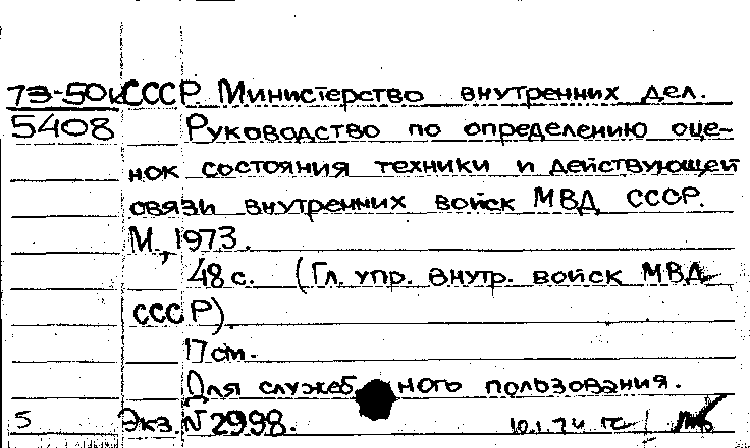 73-50к СССР. Министерство внутренних дел.
5408 Руководство по определению оце-
нок состояния техники и действующей
связи внутренних войск МВД СССР.
М., 1973.
48 с. (Гл. упр. внутр. войск МВД
СССР).
17 cm.
Для служебного пользования.
5 Экз. № 2998. 10.1.74